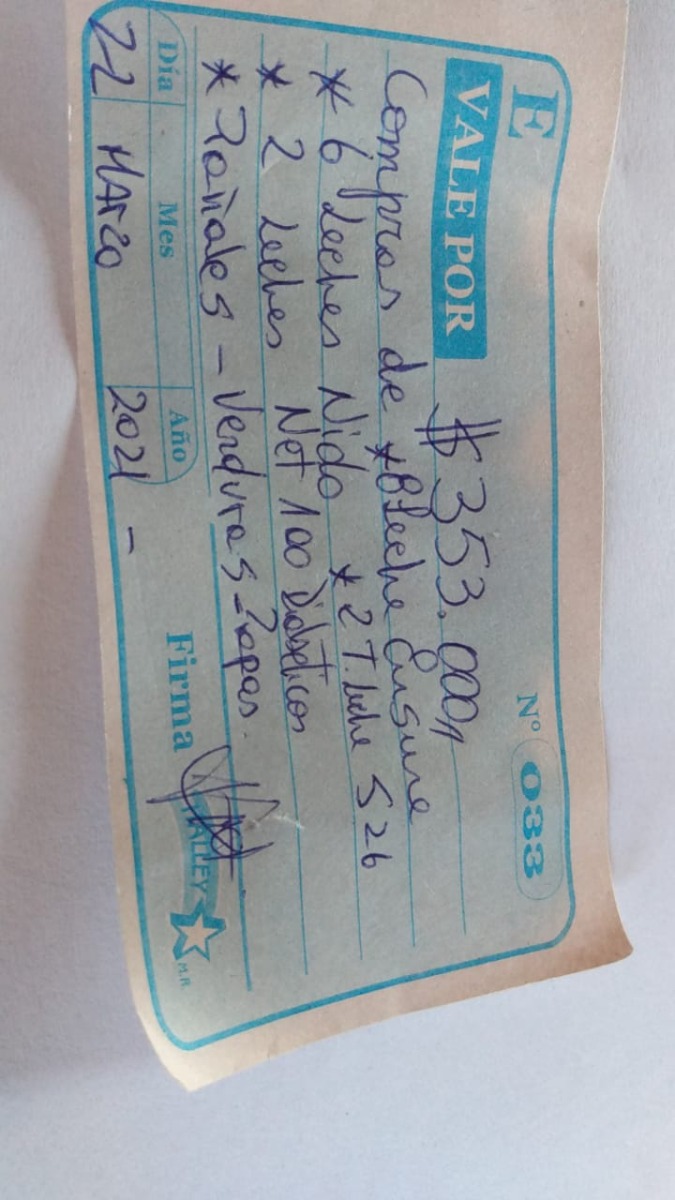 E Nº 033
VALE POR $353.000,,
Compras de *8 Leche Ensure
* 6 Leches Nido * 2 T. Leche S26
* 2 Leches Net 100 Diabeticos
* Pañales - Verduras - Papas.
Día Mes Año Firma
22 Marzo 2021 -
HALLEY
M.R.